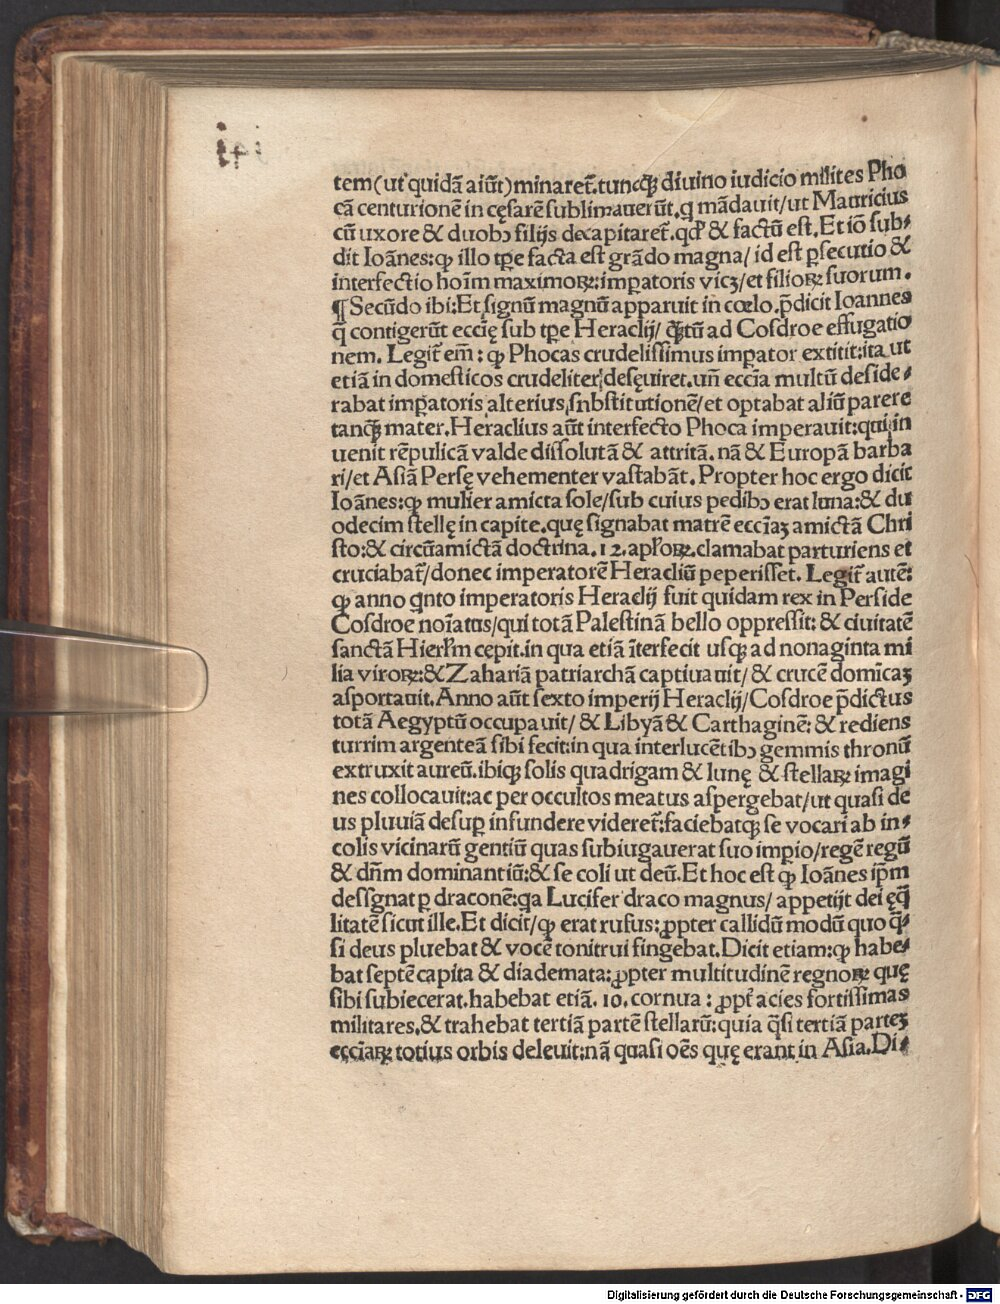 tem(ut quidã aiũt)minaret᷑.tuncq̃ diuino iudicio milites Pho
cã centurionẽ in cęsarẽ sublimauerũt.q mãdauit/ut Mauricius
cũ uxore & duobꝰ filijs decapitaret᷑.qđ & factũ est.Et iõ sub⸗
dit Ioãnes:ꝙ illo tꝑe facta est grãdo magna/id est ꝑsecutio &
interfectio hoĩm maximoꝝ:imꝑatoris vicꝫ/et filioꝝ suorum.
¶Secũdo ibi:Et signũ magnũ apparuit in cœlo.p̃dicit Ioannes
q̃ contigerũt eccĩę sub tꝑe Heraclij/ q̃tũ ad Cosdroe effugatio
nem. Legit᷑ em̃: ꝙ Phocas crudelissimus imꝑator extitit:ita ut
etiã in domesticos crudeliter desęuiret.uñ eccĩa multũ deside⸗
rabat imꝑatoris alterius snbstitutionẽ/et optabat aliũ parere
tanq̃ mater.Heraclius aũt interfecto Phoca imperauit:qui in
uenit rẽpulicã valde dissolutã & attritã.nã & Europã barba
ri/et Asiã Persę vehementer vastabãt.Propter hoc ergo dicit
Ioãnes:ꝙ mulier amicta sole/sub cuius pedibꝰ erat luna:& du
odecim stellę in capite.quę signabat matrẽ eccĩaꝫ amictã Chri
sto:& circũamictã doctrina.12.apl̃oꝝ.clamabat parturiens et
cruciabat᷑/donec imperatorẽ Heracliũ peperisset. Legit᷑ autẽ:
ꝙ anno qnto imperatoris Heraclij fuit quidam rex in Perside
Cosdroe noĩatus/qui totã Palestinã bello oppressit: & ciuitatẽ
sanctã Hierl̃m cepit.in qua etiã ĩterfecit usqꝫ ad nonaginta mi
lia viroꝝ:& Zahariã patriarchã captiuauit/& crucẽ domĩcaꝫ
asportauit.Anno aũt sexto imperij Heraclij/Cosdroe p̃dictus
totã Aegyptũ occupauit/ & Libyã & Carthaginẽ: & rediens
turrim argenteã sibi fecit:in qua interlucẽtibꝰ gemmis thronũ
extruxit aureũ.ibiqꝫ solis quadrigam & lunę & stellaꝝ imagi
nes collocauit:ac per occultos meatus aspergebat/ut quasi de
us pluuiã desuꝑ infundere videret᷑:faciebatqꝫ se vocari ab in⸗
colis vicinarũ gentiũ quas subiugauerat suo imꝑio/regẽ regũ
& dñm dominantiũ:& se coli ut deũ.Et hoc est ꝙ Ioãnes iꝑm
dessgnat ꝑ draconẽ:qa Lucifer draco magnus/ appetijt dei ęq̃
litatẽ sicut ille.Et dicit/ꝙ erat rufus:ꝓpter callidũ modũ quo q̃⸗
si deus pluebat & vocẽ tonitrui fingebat.Dicit etiam:ꝙ habe⸗
bat septẽ capita & diademata:ꝓpter multitudinẽ regnoꝝ quę
sibi subiecerat.habebat etiã. 10. cornua : ꝓpt᷑ acies fortissimas
militares.& trahebat tertiã partẽ stellarũ:quia q̃si tertiã partẽ
eccĩaꝝ totius orbis deleuit:nã quasi oẽs quę erant in Asia.Di⸗
Digitalisierung gefördert durch die Deutsche Forschungsgemeinschaft - DFG